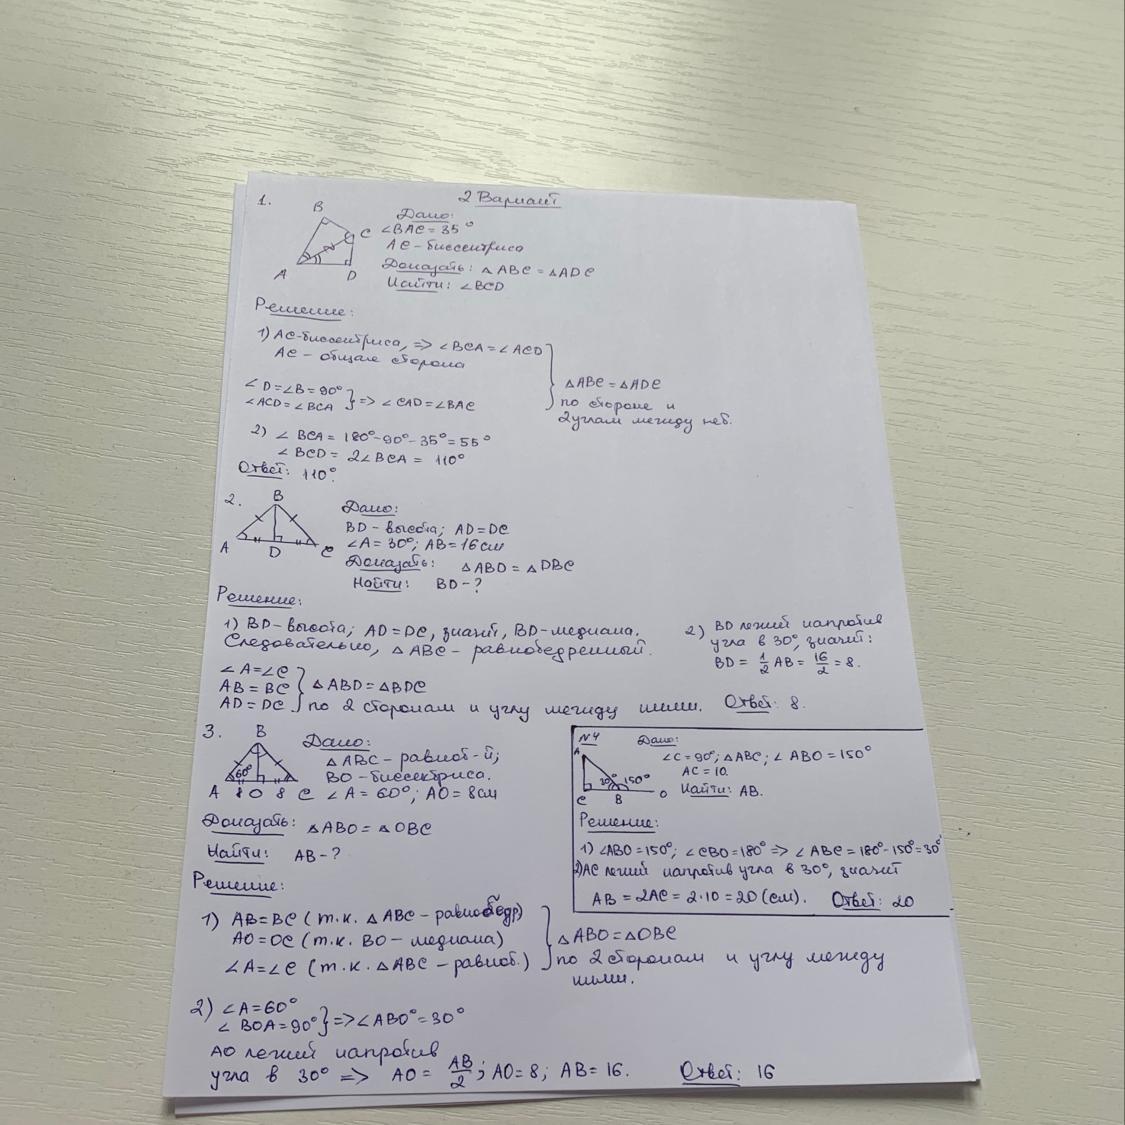 2 Вариант
1.
B
C
A
D
Дано:
∠BAC = 35°
AC - биссектриса
Доказать: △ABC = △ADC
Найти: ∠BCD
Решение:
1) AC-биссектриса, => ∠BCA = ∠ACD
AC - общая сторона
∠D = ∠B = 90°
∠ACD = ∠BCA } => ∠CAD = ∠BAC
△ABC = △ADC
по стороне и
2 углам между ней.
2) ∠BCA = 180°-90°-35° = 55°
∠BCD = 2∠BCA = 110°
Ответ: 110°
2.
B
A
D
C
Дано:
BD - высота; AD = DC
∠A = 30°; AB = 16 см
Доказать: △ABD = △DBC
Найти: BD - ?
Решение:
1) BD - высота; AD = DC, значит, BD - медиана.
Следовательно, △ABC - равнобедренный.
∠A = ∠C
AB = BC } △ABD = △BDC
AD = DC по 2 сторонам и углу между ними.
2) BD лежит напротив
угла в 30°, значит:
BD = 1/2 AB = 16/2 = 8.
Ответ: 8.
3.
B
60°
A 8 O 8 C
Дано:
△ABC - равноб-й;
BO - биссектриса.
∠A = 60°; AO = 8 см
Доказать: △ABO = △OBC
Найти: AB - ?
Решение:
1) AB = BC (т.к. △ABC - равнобедр)
AO = OC (т.к. BO - медиана)
∠A = ∠C (т.к. △ABC - равноб.)
△ABO = △OBC
по 2 сторонам и углу между
ними.
2) ∠A = 60°
∠BOA = 90° } => ∠ABO° = 30°
AO лежит напротив
угла в 30° => AO = AB/2; AO = 8; AB = 16.
Ответ: 16
N4
A
30° 150°
C B O
Дано:
∠C = 90°; △ABC; ∠ABO = 150°
AC = 10.
Найти: AB.
Решение:
1) ∠ABO = 150°; ∠CBO = 180° => ∠ABC = 180°-150° = 30°
2) AC лежит напротив угла в 30°, значит
AB = 2AC = 2·10 = 20 (см). Ответ: 20